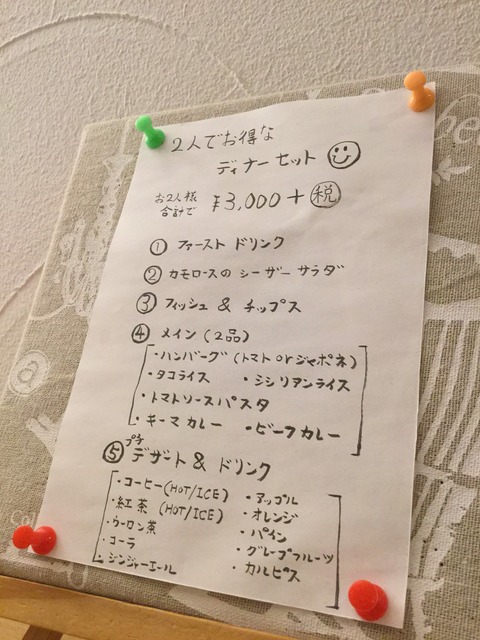 2人でお得な
ディナーセット
お2人様
合計で ¥3,000+税
① ファーストドリンク
② カモロースのシーザーサラダ
③ フィッシュ & チップス
④ メイン(2品)
・ハンバーグ(トマトorジャポネ)
・タコライス ・シシリアンライス
・トマトソースパスタ
・キーマカレー ・ビーフカレー
プチ
⑤ デザート & ドリンク
・コーヒー(HOT/ICE) ・アップル
・紅茶 (HOT/ICE) ・オレンジ
・ウーロン茶 ・パイン
・コーラ ・グレープフルーツ
・ジンジャーエール ・カルピス